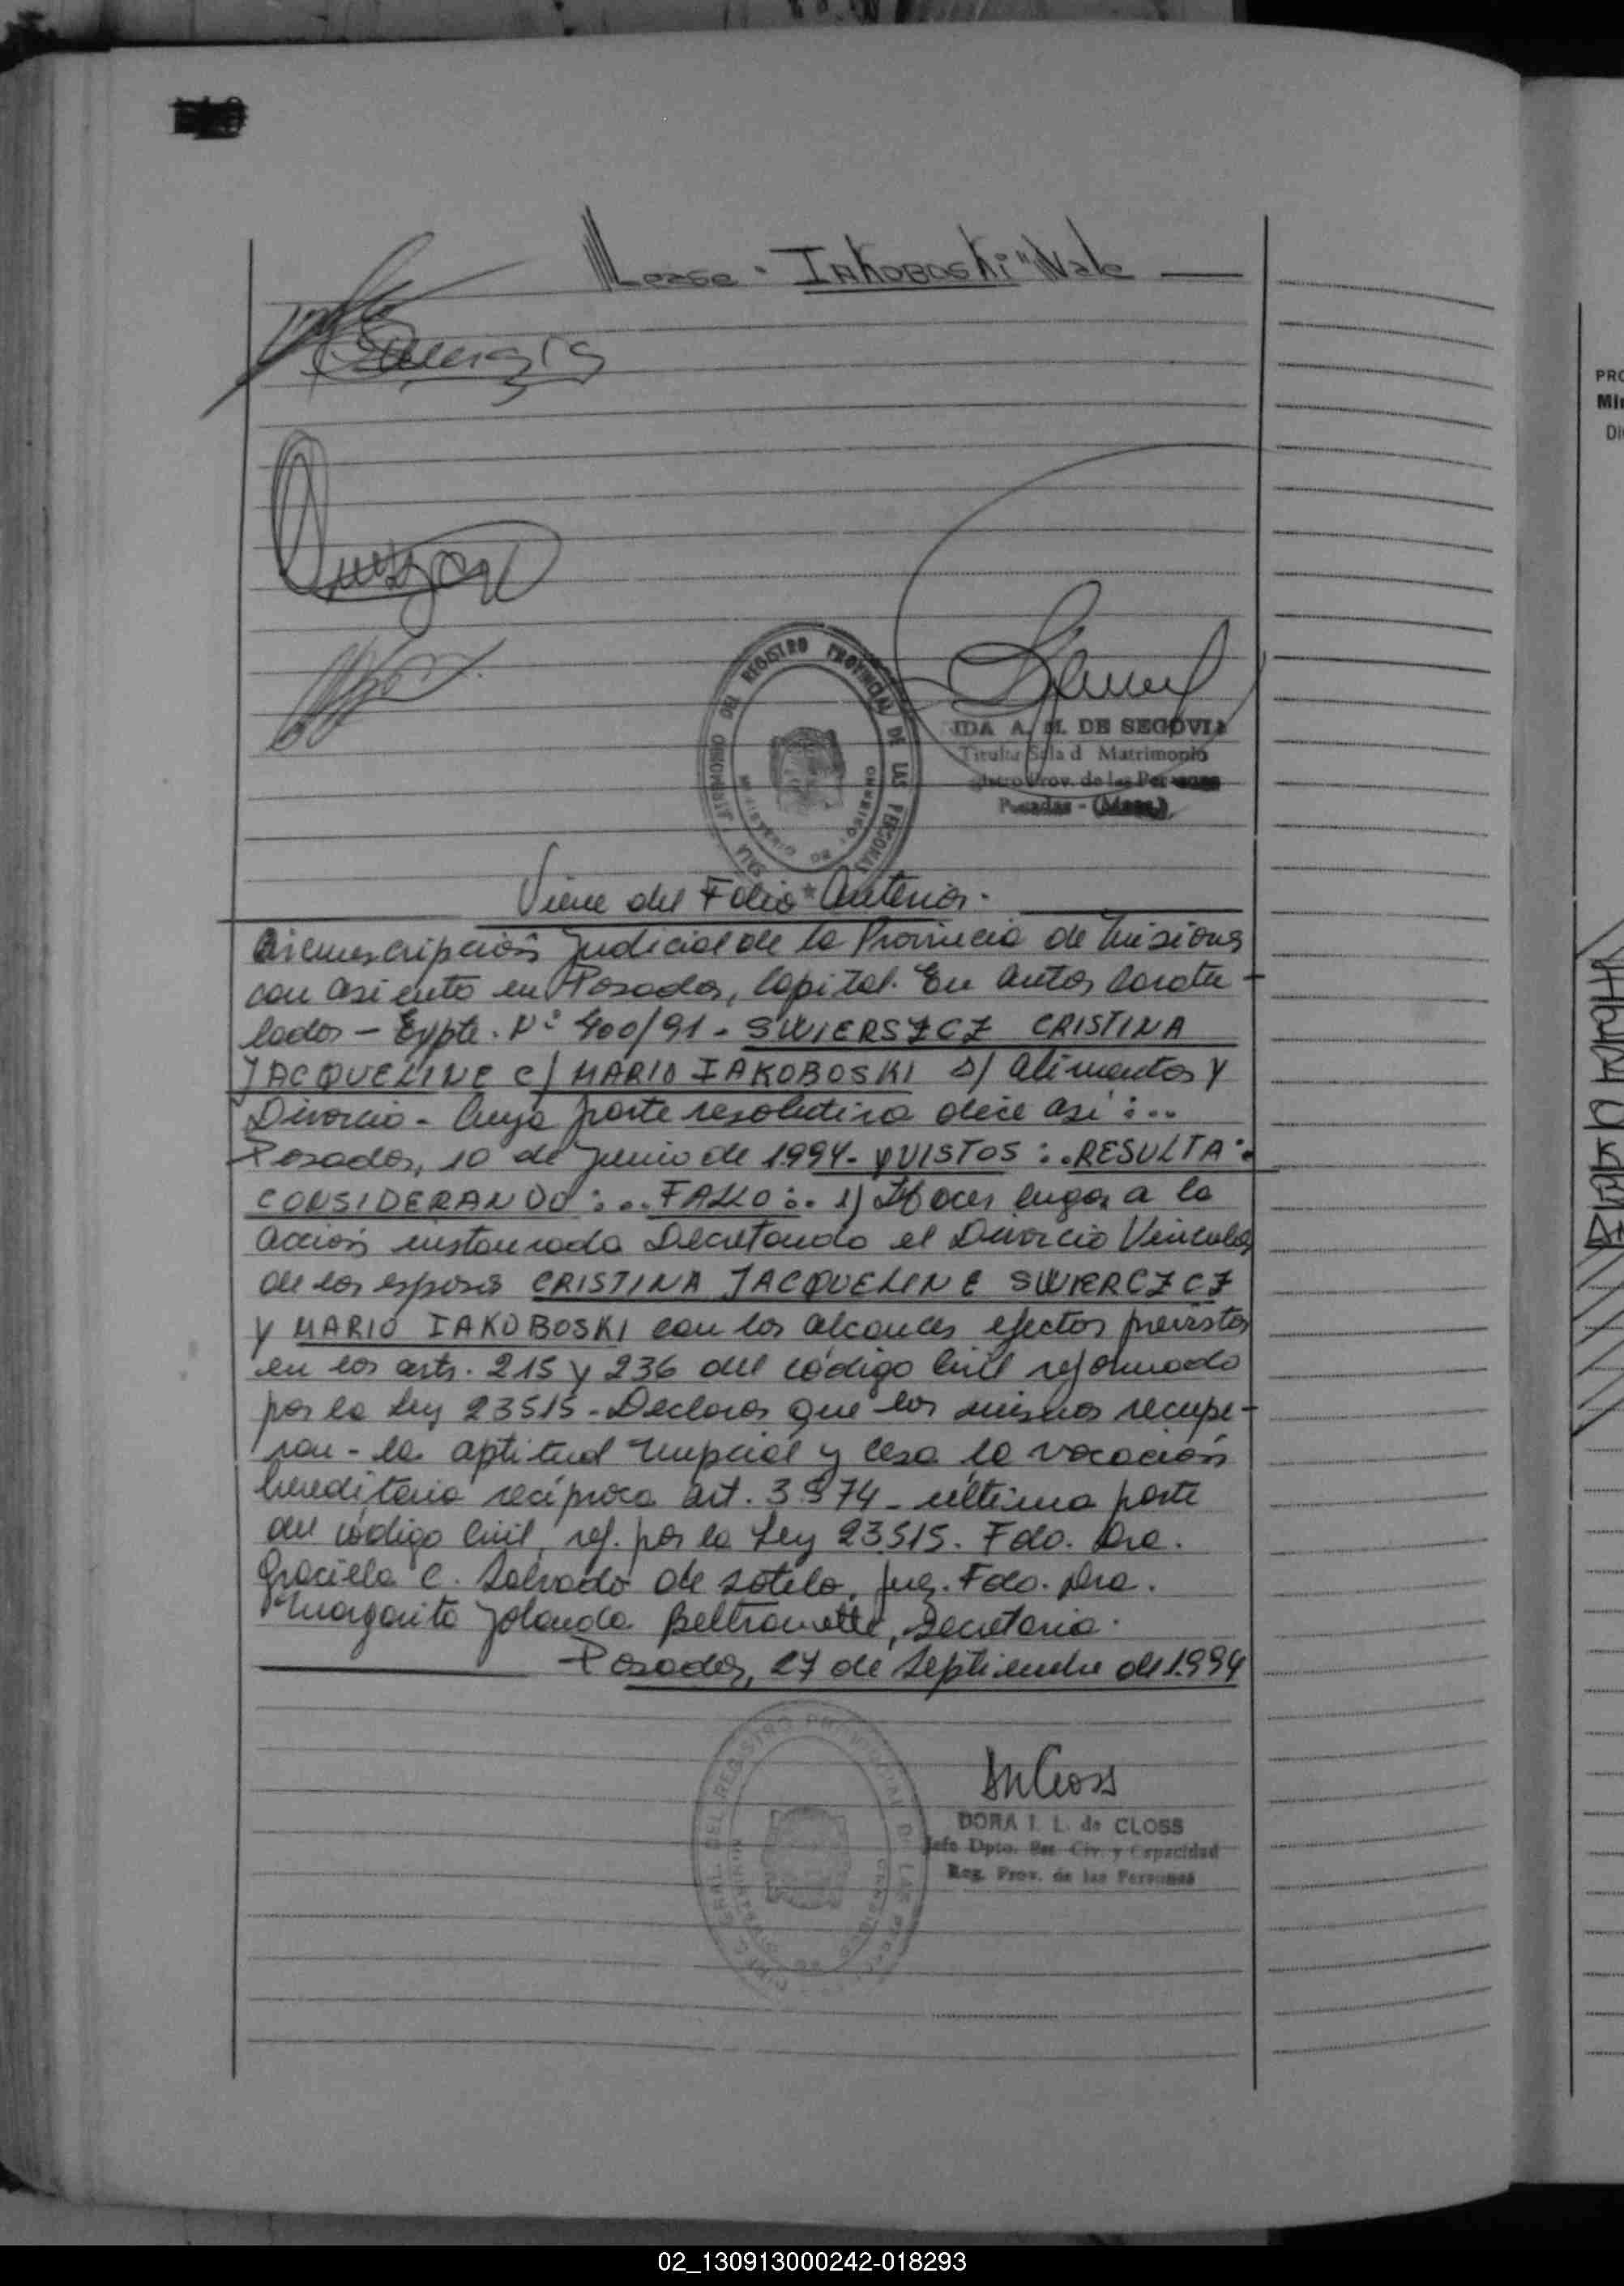 Lease "IAKOBOSKi" Vale
REGISTRO PROVINCIAL DE LAS PERSONAS
IDA A. M. DE SEGOVIA
Titular Sala d Matrimonio
Prov. de las Personas
Posadas - (Mnes.)
Viene del Folio Anterior.
Circunscripción Judicial de la Provincia de Misiones
con asiento en Posadas, Capital. En autos Caratu-
lados - Expte. Nº 400/91 - SWIERSZCZ CRISTINA
JACQUELINE C/ MARIO IAKOBOSKI S/ Alimentos y
Divorcio - Cuya parte resolutiva dice así:..
Posadas, 10 de Junio de 1994. Y VISTOS:.. RESULTA:.
CONSIDERANDO:... FALLO:.. 1) Hacer lugar a la
acción instaurada Decretando el Divorcio Vincular
de los esposos CRISTINA JACQUELINE SWIERCZCZ
y MARIO IAKOBOSKI con los alcances efectos previstos
en los arts. 215 y 236 del código Civil reformado
por la Ley 23515 - Declarar que los mismos recupe-
ran - la aptitud nupcial y cesa la vocación
hereditaria recíproca art. 3574 - última parte
del código Civil, ref. por la Ley 23.515. Fdo. Dra.
Graciela C. Salvado de Sotelo, Juez. Fdo. Dra.
Margarita Jolanda Beltrametti, Secretaria.
Posadas, 27 de Septiembre de 1.994
DORA I. L. de CLOSS
Jefe Dpto. Est. Civ. y Capacidad
Reg. Prov. de las Personas
PRO
Min
DI
02_130913000242-018293